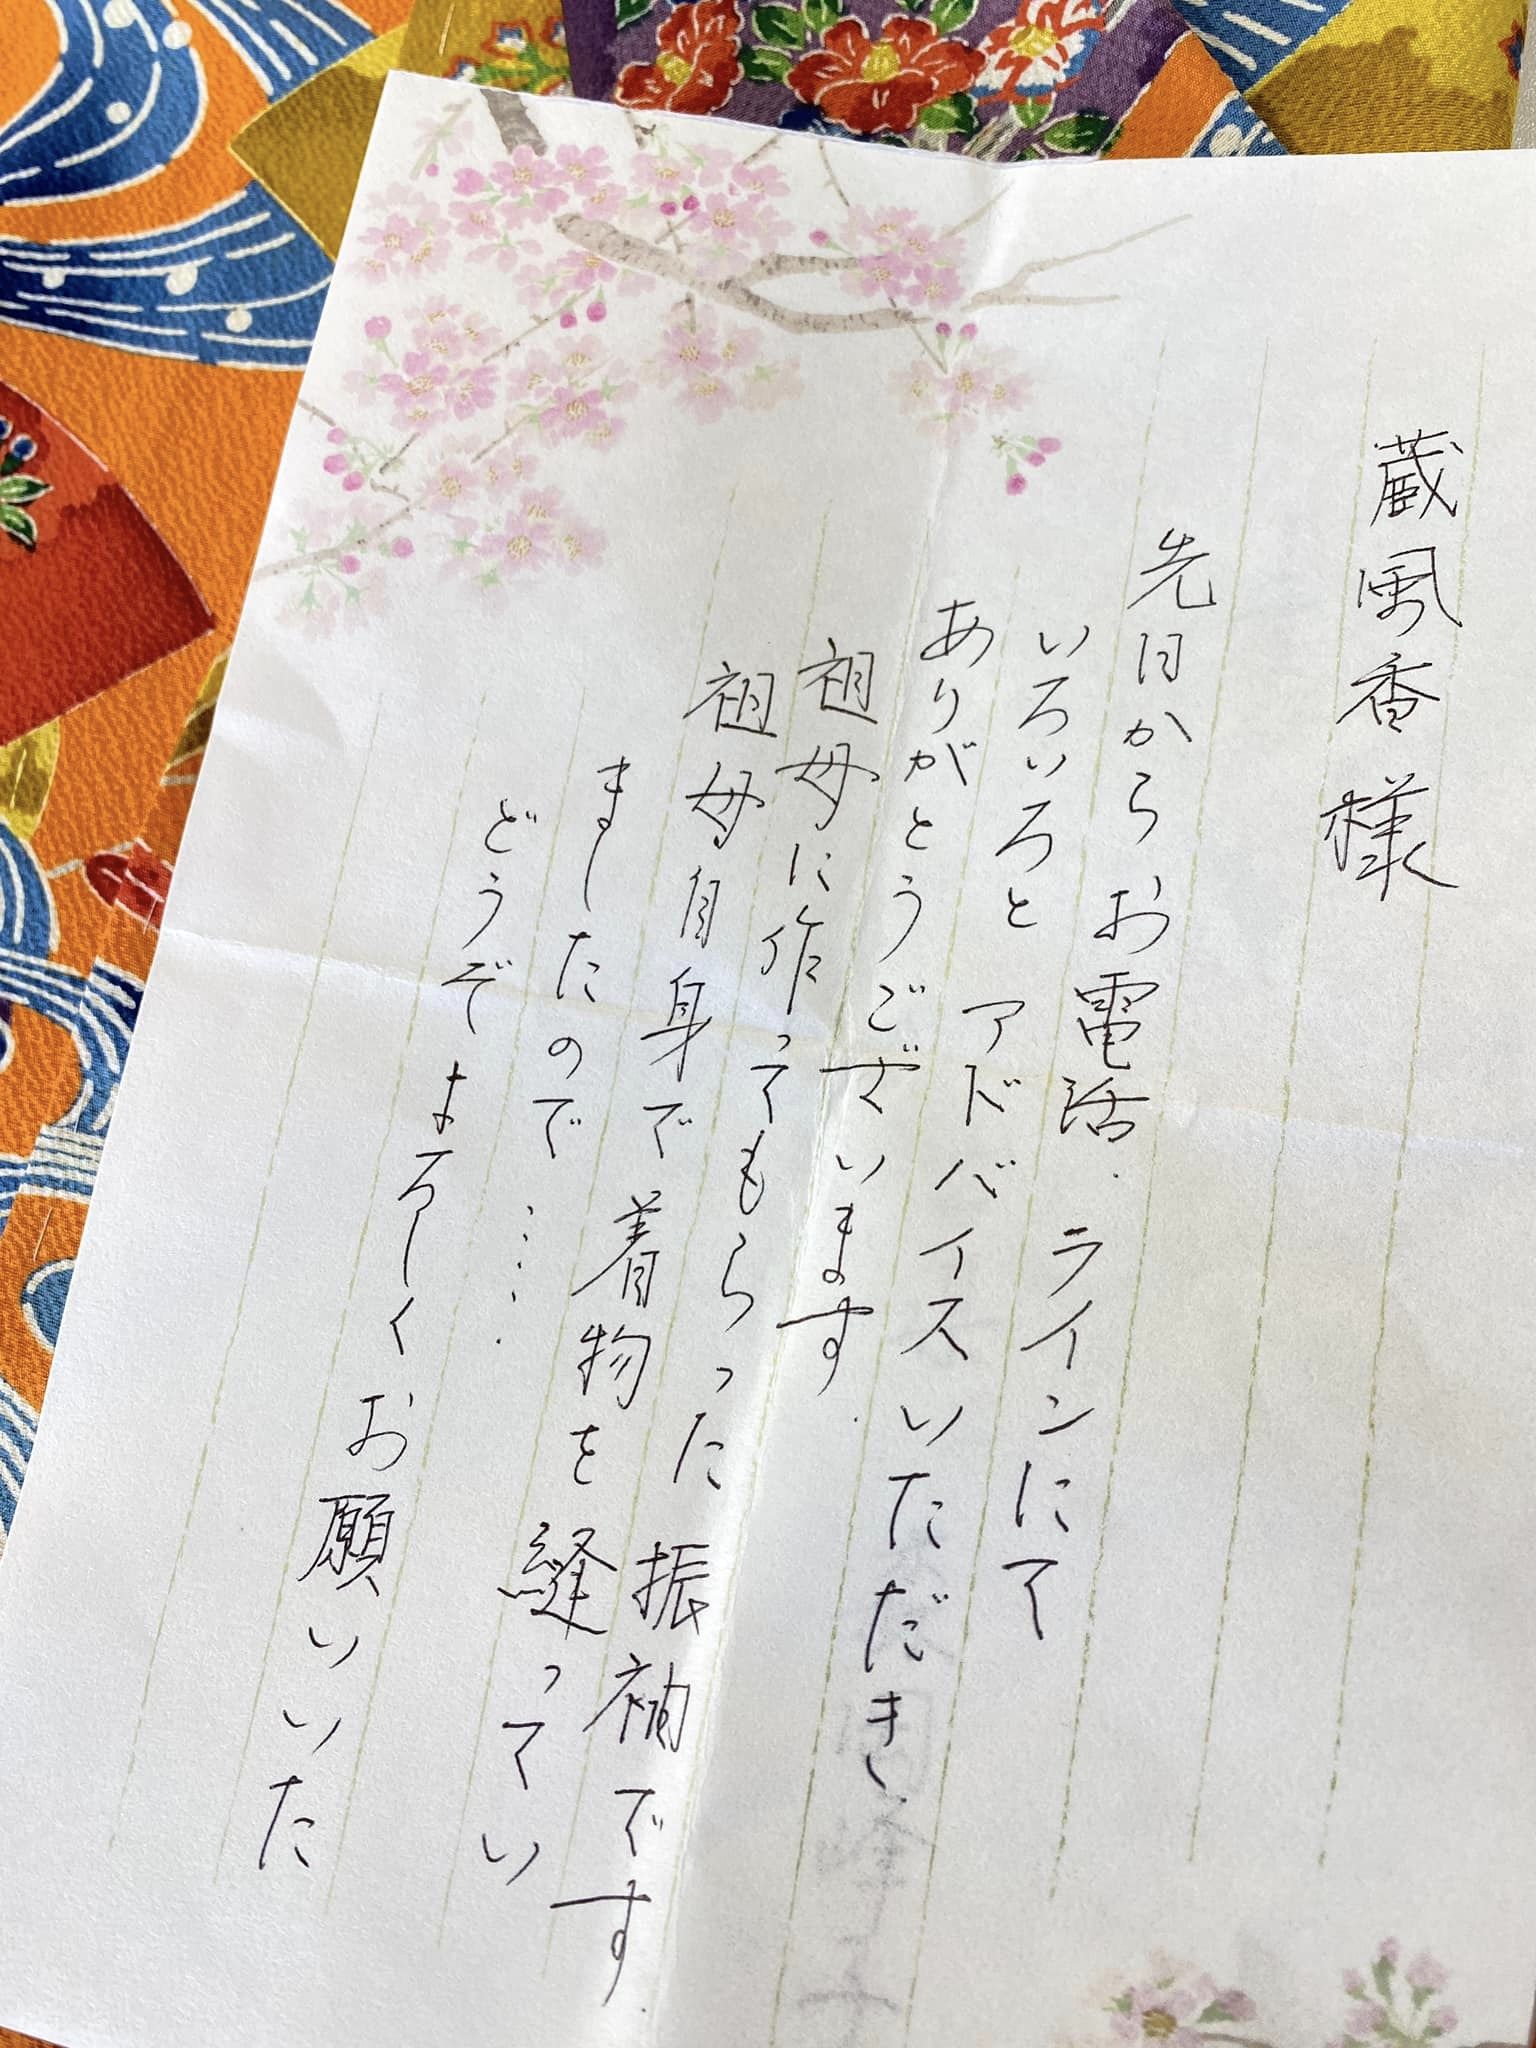 蔵風香様
先日からお電話.ラインにて
いろいろとアドバイスいただき.
ありがとうございます.
祖母に作ってもらった振袖です.
祖母自身で着物を縫ってい
ましたので.....
どうぞよろしくお願いいた